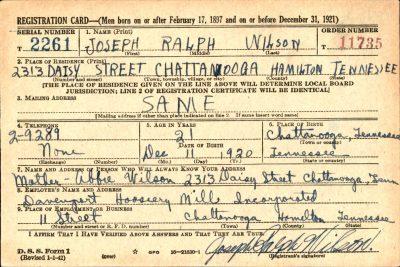 REGISTRATION CARD—(Men born on or after February 17, 1897 and on or before December 31, 1921)
SERIAL NUMBER 1. NAME (Print) ORDER NUMBER
T 2261 JOSEPH RALPH WILSON 11735
(First) (Middle) (Last)
2. PLACE OF RESIDENCE (Print)
2313 DAISY STREET CHATTANOOGA HAMILTON TENNESSEE
(Number and street) (Town, township, village, or city) (County) (State)
[THE PLACE OF RESIDENCE GIVEN ON THE LINE ABOVE WILL DETERMINE LOCAL BOARD
JURISDICTION; LINE 2 OF REGISTRATION CERTIFICATE WILL BE IDENTICAL]
3. MAILING ADDRESS
SAME
[Mailing address if other than place indicated on line 2. If same insert word same]
4. TELEPHONE 5. AGE IN YEARS 6. PLACE OF BIRTH
2-9289 21 Chattanooga, Tennessee
DATE OF BIRTH (Town or county)
None Dec 11 1920 Tennessee
(Exchange) (Number) (Mo.) (Day) (Yr.) (State or country)
7. NAME AND ADDRESS OF PERSON WHO WILL ALWAYS KNOW YOUR ADDRESS
Mother- Abbie Wilson 2313 Daisy Street Chattanooga, Tenn
8. EMPLOYER'S NAME AND ADDRESS
Davenport Hoosiery Mills Incorporated
9. PLACE OF EMPLOYMENT OR BUSINESS
11 Street Chattanooga Hamilton Tennessee
(Number and street or R. F. D. number) (Town) (County) (State)
I AFFIRM THAT I HAVE VERIFIED ABOVE ANSWERS AND THAT THEY ARE TRUE.
D. S. S. Form 1
(Revised 1-1-42) GPO 16—21630-1 Joseph Ralph Wilson.
(Registrant's signature)